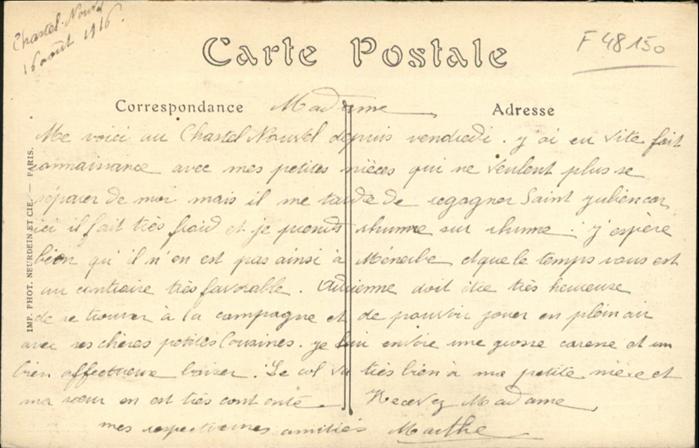 Chastel-Nouvel
16 août 1916
F 48150
Carte Postale
Correspondance
Adresse
Madame
Me voici au Chastel Nouvel depuis vendredi. j'ai eu vite fait
connaissance avec mes petites nièces qui ne veulent plus se
séparer de moi mais il me tarde de regagner Saint Julien car
ici il fait très froid et je prends rhume sur rhume. j'espère
bien qu'il n'en est pas ainsi à et que le temps vous est
au contraire très favorable. Adrienne doit être très heureuse
de se trouver à la campagne et de pouvoir jouer en plein air
avec ses chères petites Cousines. je lui envoie une grosse caresse et un
bien affectueux baiser. Le col va très bien à ma petite nièce et
ma sœur en est très contente. Recevez Madame,
mes respectueuses amitiés Marthe
IMP. PHOT. NEURDEIN ET CIE. — PARIS.